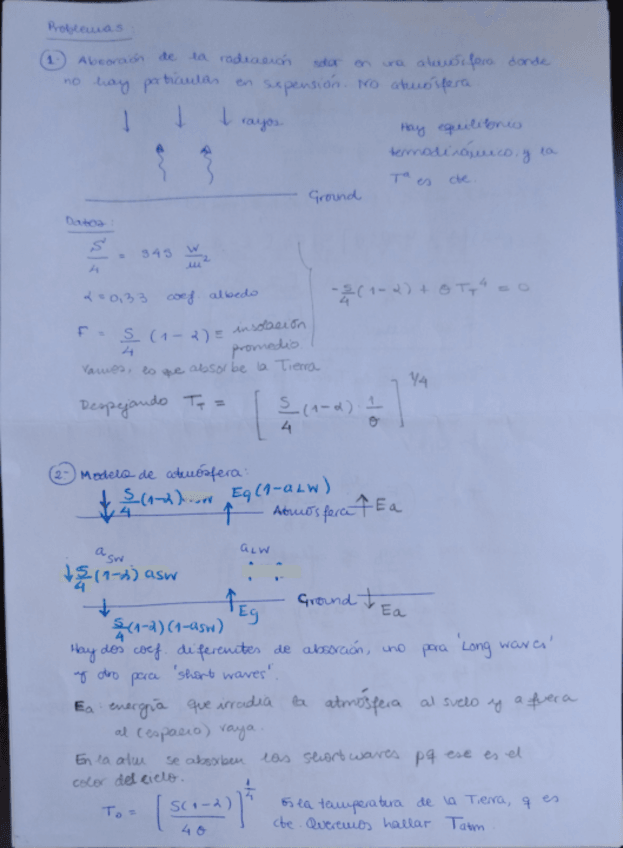 Problemas:
1- Absorción de la radiación solar en una atmósfera donde
no hay partículas en suspensión. No atmósfera.
rayos.
Hay equilibrio
termodinámico, y la
Tª es cte.
Ground
Datos:
S/4 = 343 W/m²
α = 0,33 coef. albedo
F = S/4 (1-α) ≡ insolación
promedio
Vamos, lo que absorbe la Tierra
-S/4 (1-α) + θ T_T⁴ = 0
Despejando T_T = [ S/4 (1-α) · 1/θ ]^1/4
2- Modelo de atmósfera:
S/4 (1-α) Eg (1-aLW) Atmósfera Ea
a_SW a_LW
S/4 (1-α) aSW
Ground Ea
S/4 (1-α)(1-aSW) Eg
Hay dos coef. diferentes de absorción, uno para 'Long waves'
y otro para 'short waves'.
Ea energía que irradia la atmósfera al suelo y a fuera
al (espacio) vaya.
En la atm se absorben las shortwaves pq ese es el
color del cielo.
T₀ = [ S(1-α) / 4θ ]^1/4 Es la temperatura de la Tierra, q es
cte. Queremos hallar Tatm.